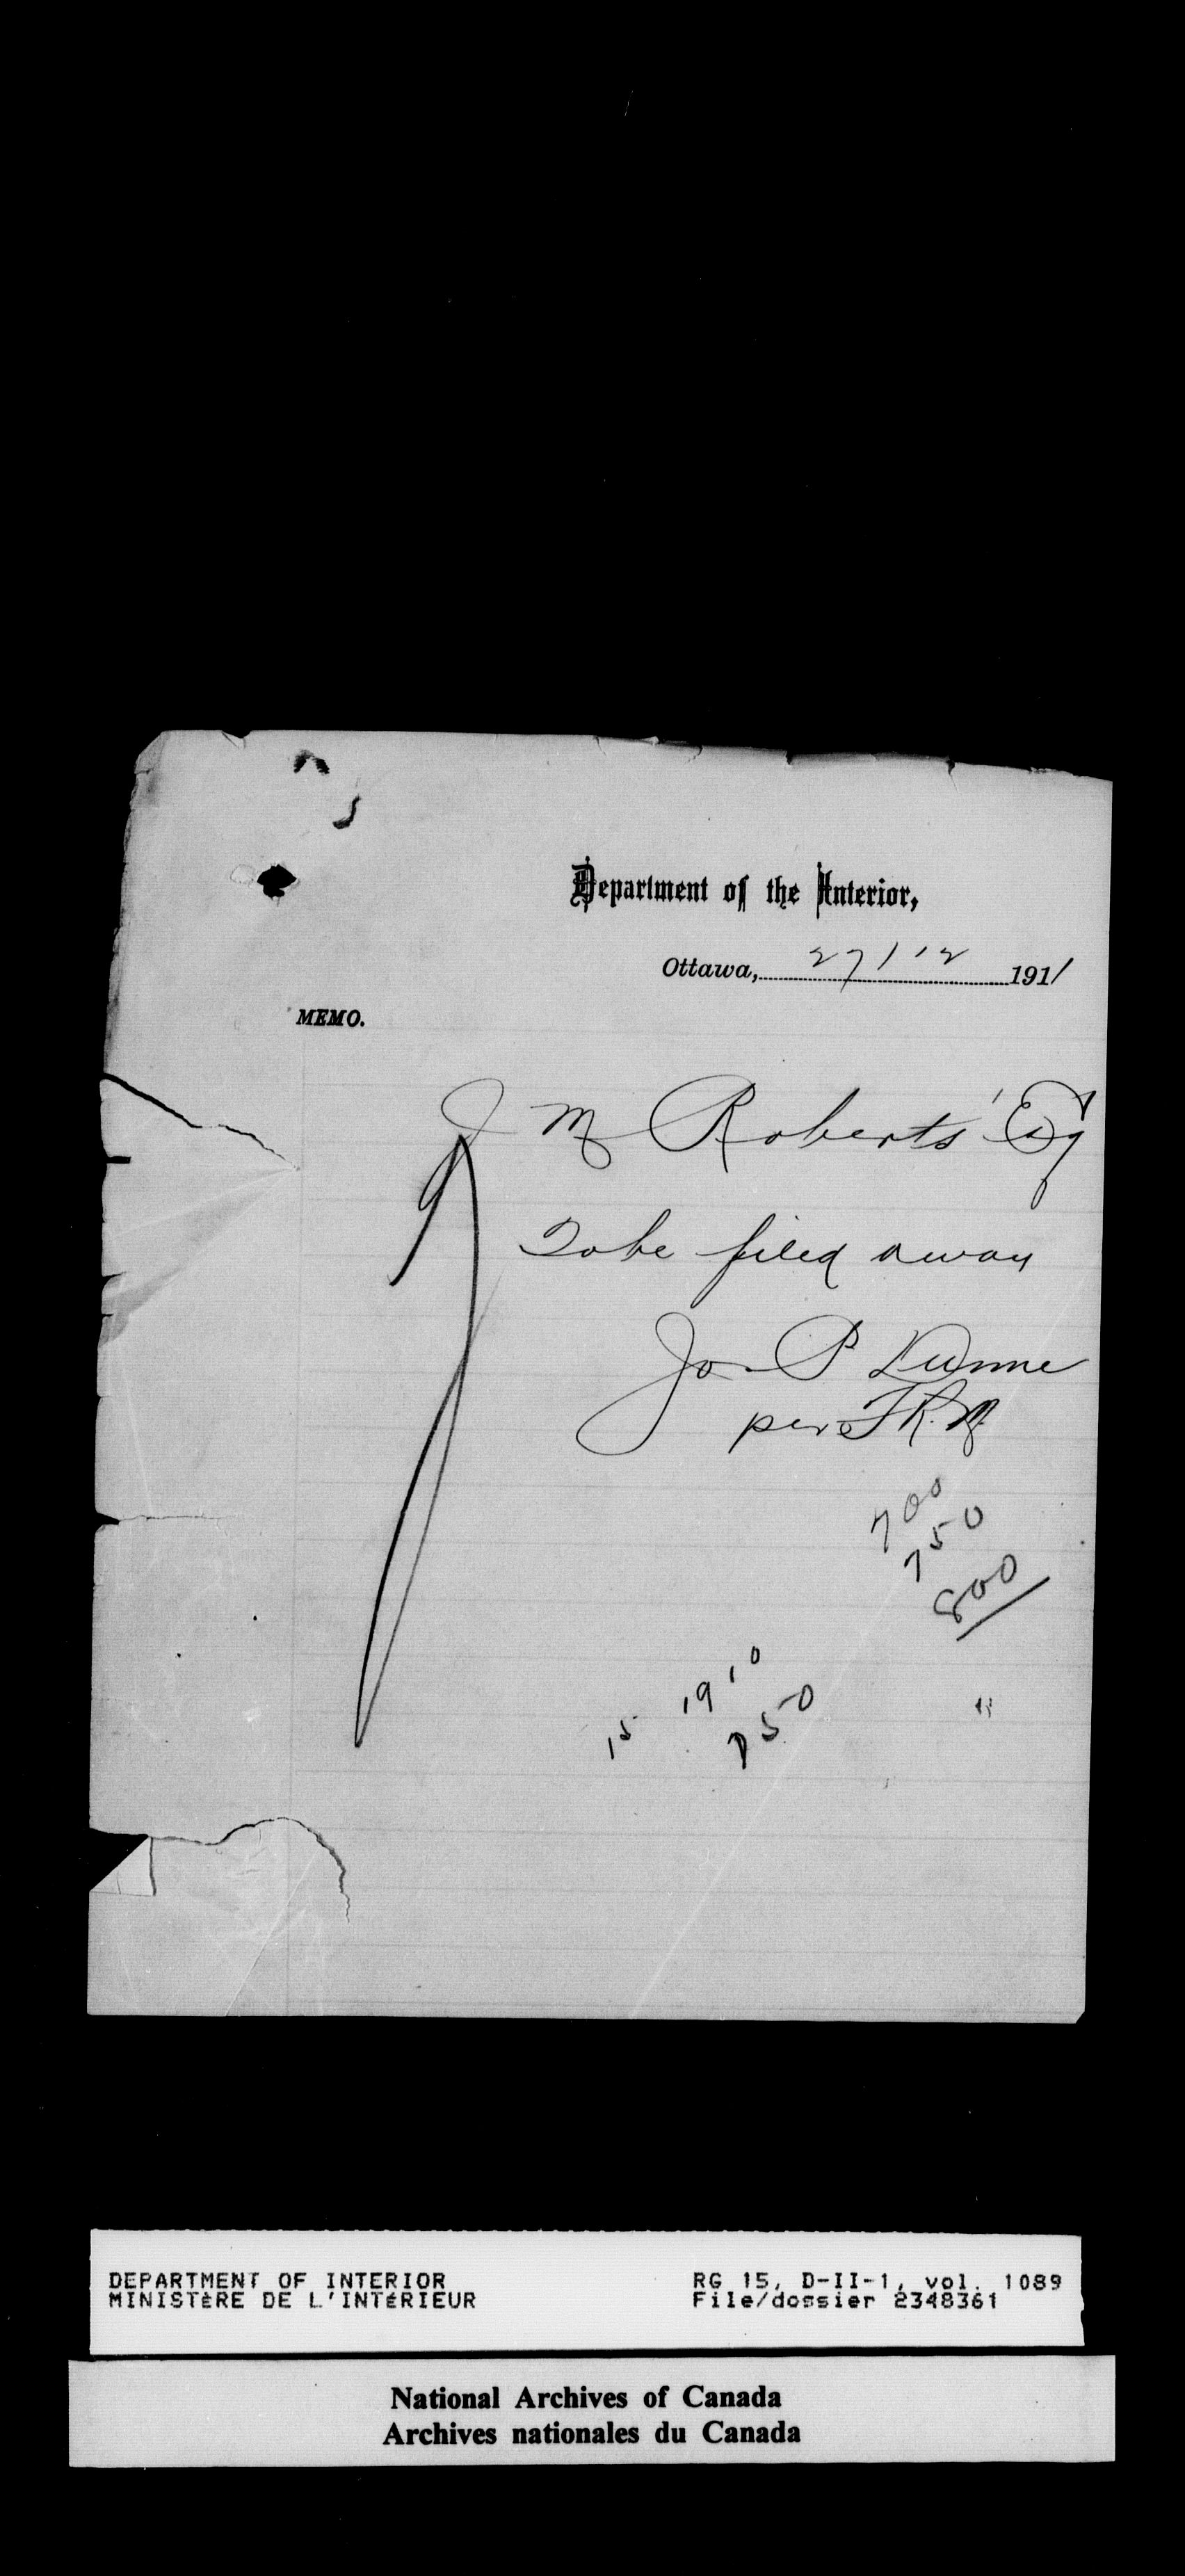 Department of the Interior,
Ottawa, 27/12 1911
MEMO.
J M Roberts' Esq
To be filed away
Jo P Dunne
per
700
750
800
15 1910
750
DEPARTMENT OF INTERIOR
MINISTÈRE DE L'INTÉRIEUR
RG 15, D-II-1, vol. 1089
File/dossier 2348361
National Archives of Canada
Archives nationales du Canada